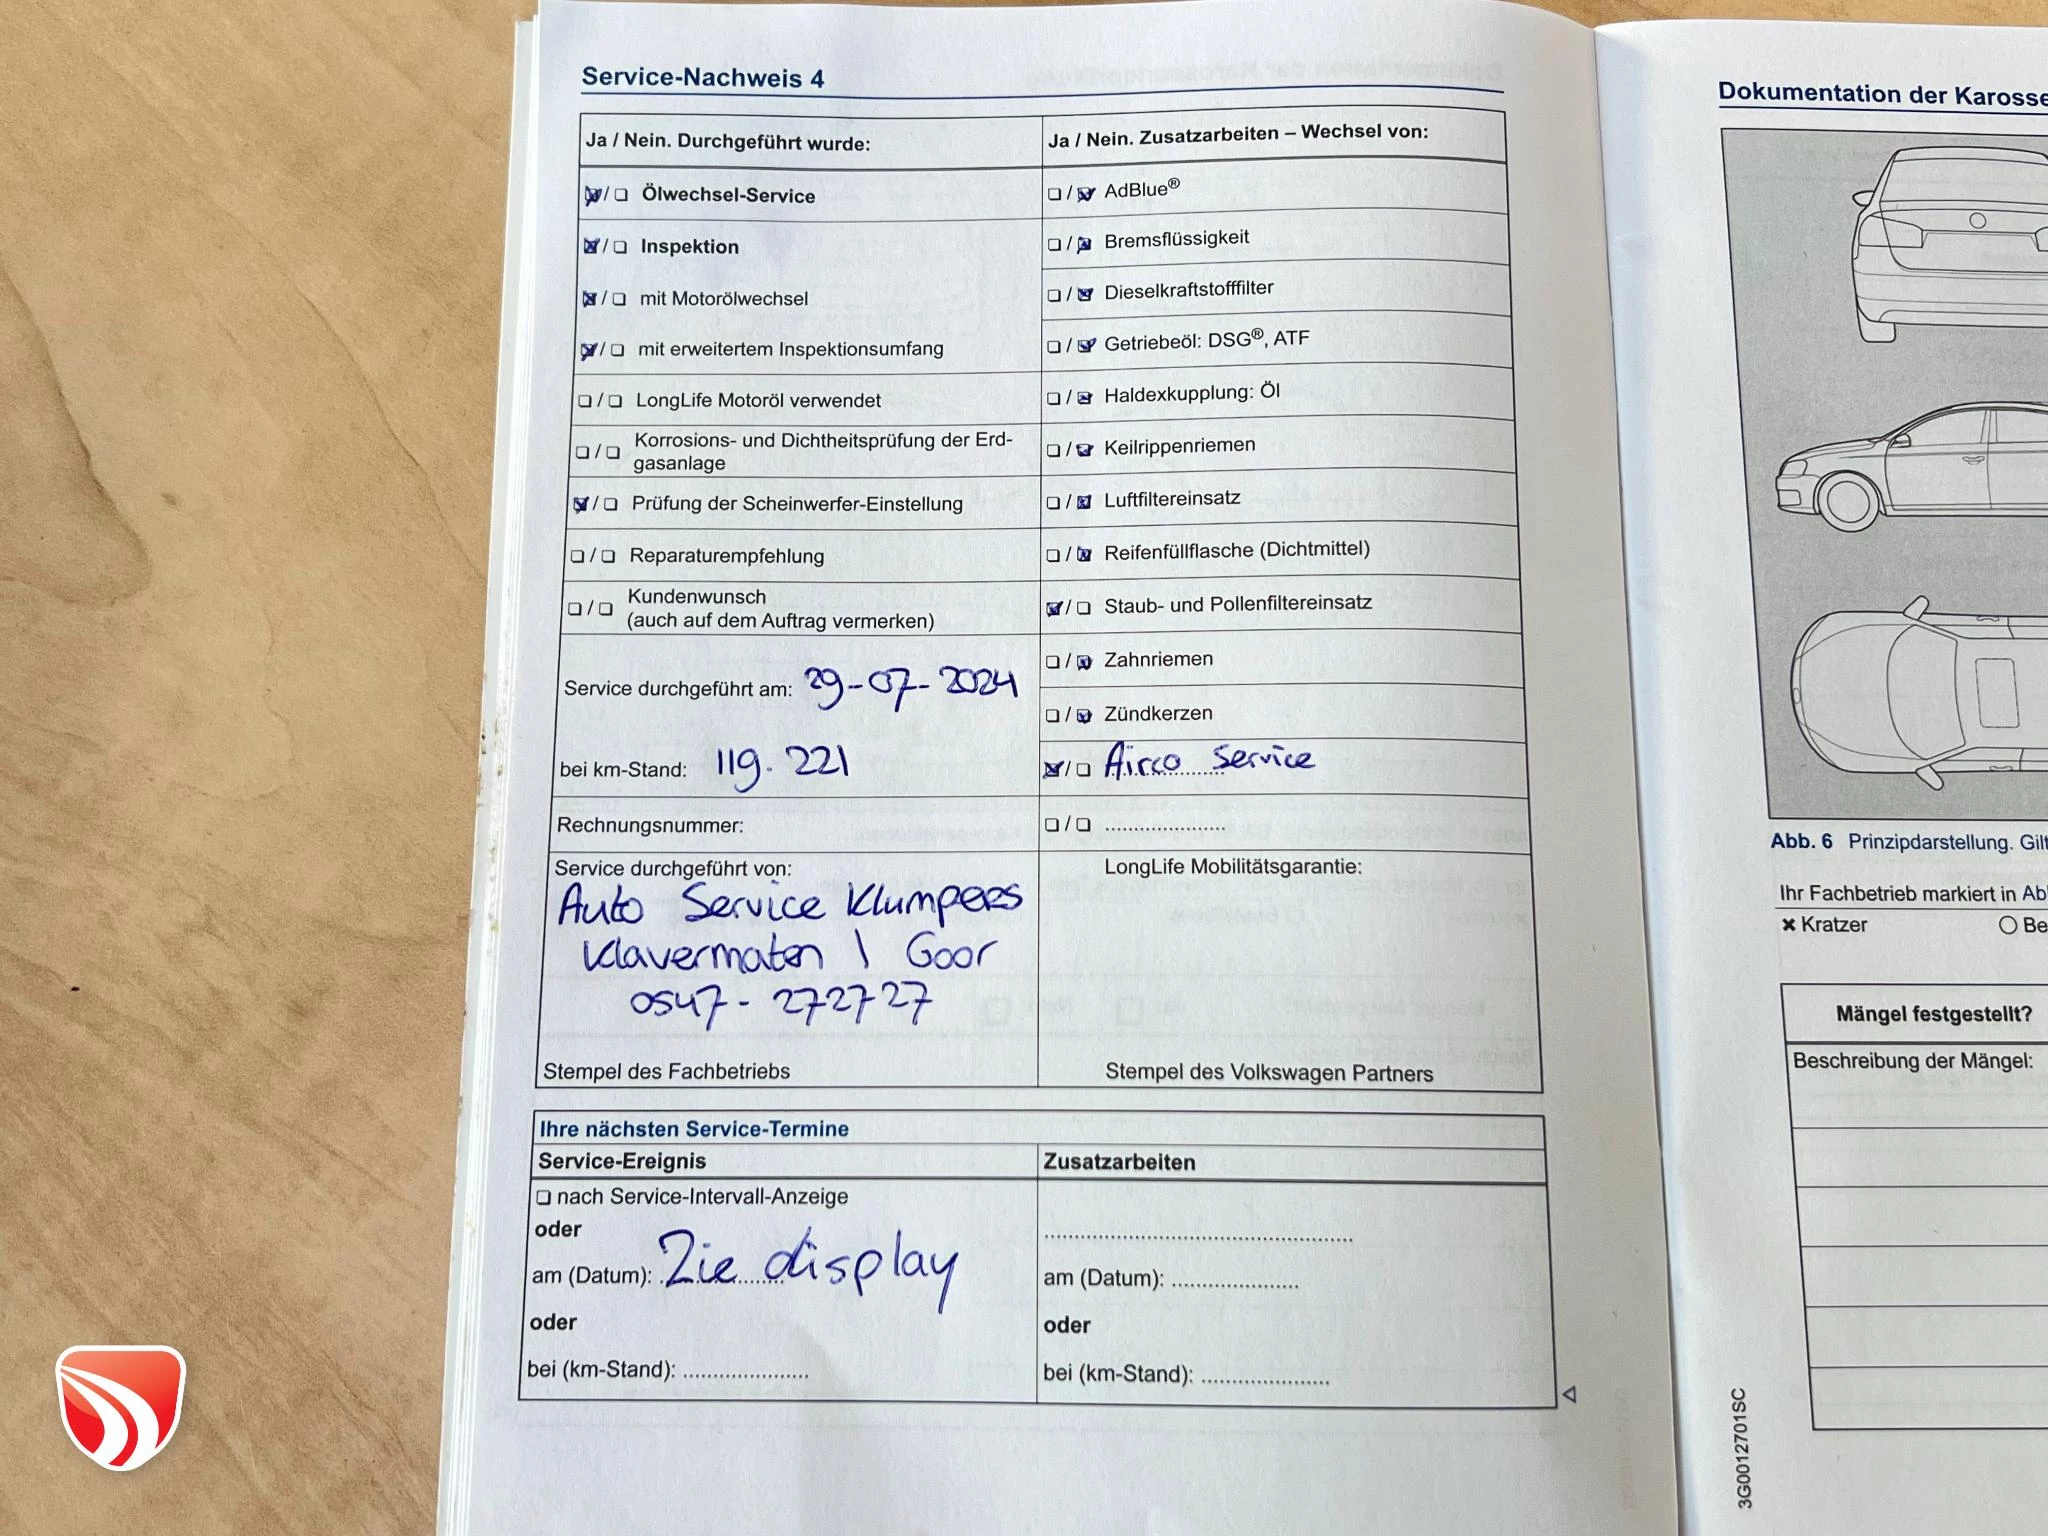 Service-Nachweis 4
Ja / Nein. Durchgeführt wurde:
☒/☐ Ölwechsel-Service
☒/☐ Inspektion
☒/☐ mit Motorölwechsel
☒/☐ mit erweitertem Inspektionsumfang
☐/☐ LongLife Motoröl verwendet
☐/☐ Korrosions- und Dichtheitsprüfung der Erd-
gasanlage
☒/☐ Prüfung der Scheinwerfer-Einstellung
☐/☐ Reparaturempfehlung
☐/☐ Kundenwunsch
(auch auf dem Auftrag vermerken)
Service durchgeführt am: 29-07-2024
bei km-Stand: 119.221
Rechnungsnummer:
Service durchgeführt von:
Auto Service Klumpers
Klavermaten 1 Goor
0547-272727
Stempel des Fachbetriebs
Ja / Nein. Zusatzarbeiten – Wechsel von:
☐/☒ AdBlue®
☐/☒ Bremsflüssigkeit
☐/☒ Dieselkraftstofffilter
☐/☒ Getriebeöl: DSG®, ATF
☐/☒ Haldexkupplung: Öl
☐/☒ Keilrippenriemen
☐/☒ Luftfiltereinsatz
☐/☒ Reifenfüllflasche (Dichtmittel)
☒/☐ Staub- und Pollenfiltereinsatz
☐/☒ Zahnriemen
☐/☒ Zündkerzen
☒/☐ Airco Service
☐/☐ ....................
LongLife Mobilitätsgarantie:
Stempel des Volkswagen Partners
Ihre nächsten Service-Termine
Service-Ereignis
☐ nach Service-Intervall-Anzeige
oder
am (Datum): Zie display
oder
bei (km-Stand): ....................
Zusatzarbeiten
..................................................
am (Datum): ....................
oder
bei (km-Stand): ....................
Dokumentation der Karosse
Abb. 6 Prinzipdarstellung. Gilt
Ihr Fachbetrieb markiert in Ab
× Kratzer
○ Be
Mängel festgestellt?
Beschreibung der Mängel:
3G0012701SC